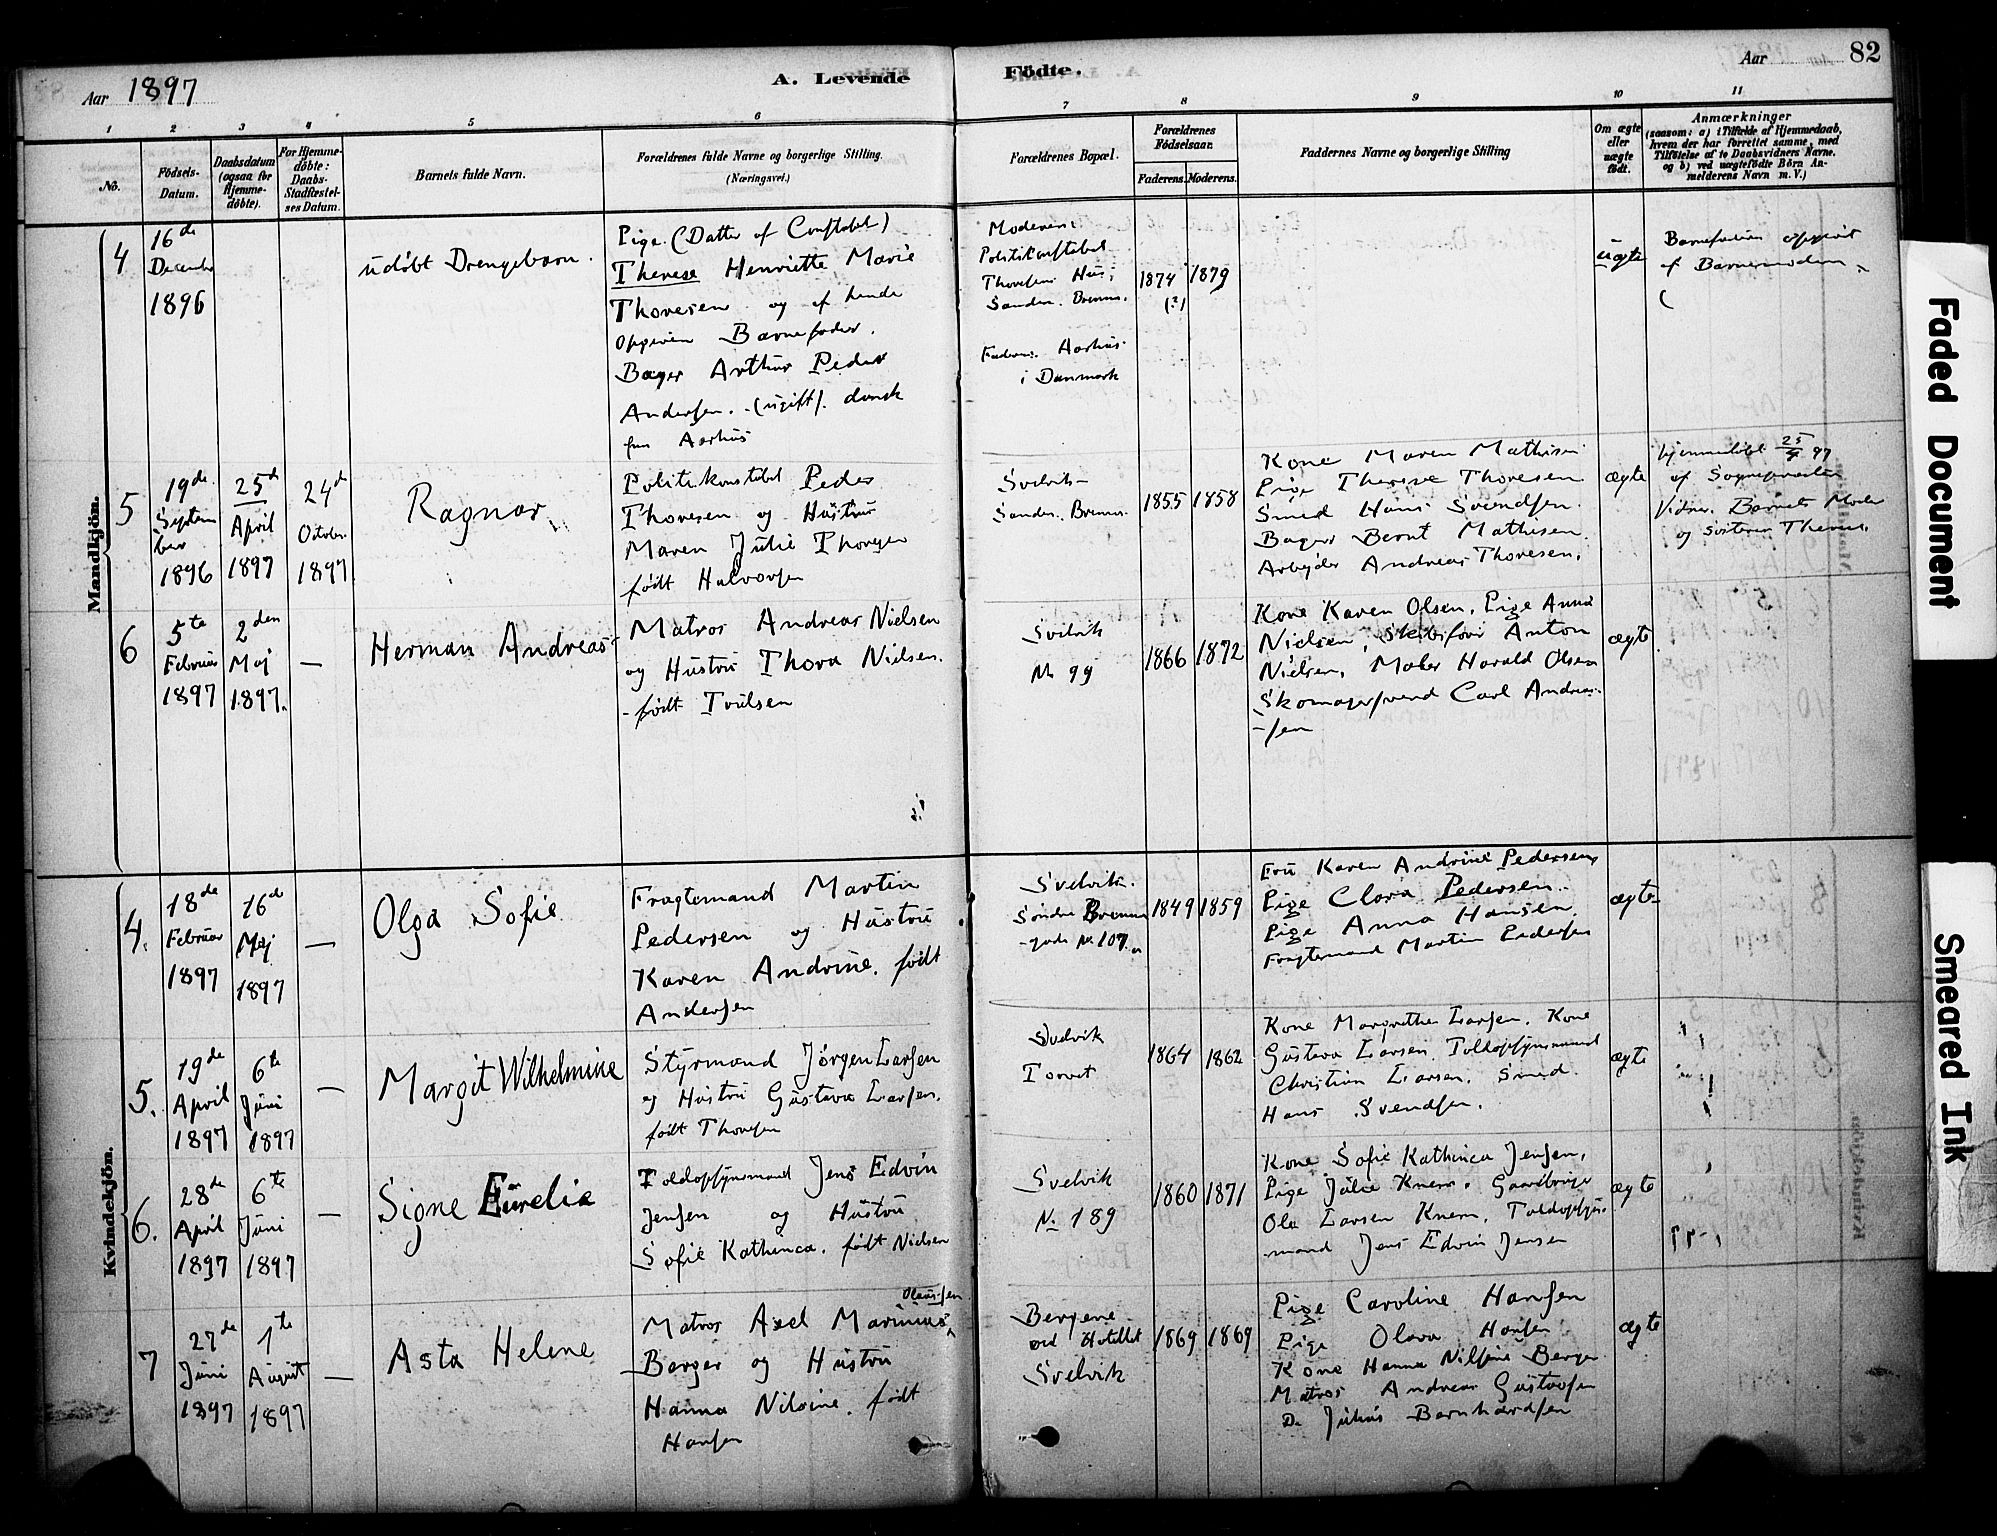 Aar 1897
A. Levende
Födte.
Aar
82
1
2
3
4
5
6
7
8
9
10
11
No.
Födsels-
Datum.
Daabsdatum
(ogsaa for
Hjemme-
döbte).
For Hjemme-
döbte:
Daabs-
Stadfæstel-
ses Datum.
Barnets fulde Navn.
Forældrenes fulde Navne og borgerlige Stilling.
(Næringsvei.)
Forældrenes Bopæl.
Forældrenes
Födselsaar.
Faderens.
Moderens.
Faddernes Navne og borgerlige Stilling
Om ægte
eller
uægte
födt.
Anmærkninger
(saasom: a) i Tilfælde af Hjemmedaab,
hvem der har forrettet samme, med
Tilföielse af to Daabsvidners Navne.
og b) ved uægtefödte Börn An-
melderens Navn m. V.)
Mandkjön.
4
16de
December
1896
udöbt Drengebarn.
Pige. (Datter af Constabel)
Therese Henriette Marie
Thoresen og af hende
opgiven Barnefader.
Bager Arthur Peder
Andersen. (ugift). dansk
fra Aarhus
Moderen:
Politikonstabel
Thoresens Hus;
Søndre. Brenna.
Faderen. Aarhus
i Danmark
1874
(?)
1879
uægte
Barnefaderen opgivet
af Barnemoderen
5
19de
Septem
ber
1896
25d
April
1897
24d
October
1897
Ragnar
Politikonstabel Peder
Thoresen og Hustru
Maren Julie Thoresen
født Halvorsen
Svelvik-
Søndre. Brenna.
1855
1858
Kone Maren Mathisen
Pige Therese Thoresen
Smed Hans Svendsen.
Bager Bernt Mathisen.
Arbejder Andreas Thoresen.
ægte
hjemmedøbt 25/4 97
af Sognepresten
Vidner. Barnets Moder
og Søsteren Therese.
6
5te
Februar
1897
2den
Maj
1897.
—
Herman Andreas
Matros Andreas Nielsen
og Hustru Thora Nielsen.
- født Trulsen
Svelvik
No 99
1866
1872
Kone Karen Olsen. Pige Anna
Nielsen, Skibsfører Anton
Nielsen, Maler Harald Olsen
Skomagersvend Carl Andrea-
-sen
ægte
Kvindekjön.
4.
18de
Februar
1897
16d
Maj
1897
—
Olga Sofie
Fragtemand Martin
Pedersen og Hustru
Karen Andrine. født
Andersen
Svelvik.
Søndre Brenna
-gade No 107.
1849
1859
Fru Karen Andrine Pedersen
Pige Clara Pedersen.
Pige Anna Hansen
Fragtemand Martin Pedersen
ægte
5.
19de
April
1897
6te
Juni
1897
—
Margit Wilhelmine
Styrmand Jørgen Larsen
og Hustru Gustava Larsen.
født Thoresen
Svelvik
Torvet
1864
1862
Kone Margrethe Larsen. Kone
Gustava Larsen. Toldopsynsmand
Christian Larsen. Smed.
Hans Svendsen.
ægte
6.
28de
April
1897
6te
Juni
1897
—
Signe Eurelie
Toldopsynsmand Jens Edvin
Jensen og Hustru
Sofie Kathinca. født Nielsen
Svelvik
No 189
1860
1871
Kone Sofie Kathinca Jensen.
Pige Julie Knem. Gaardbruger
Ole Larsen Knem. Toldopsyns-
-mand Jens Edvin Jensen
ægte
7
27de
Juni
1897
1te
August
1897
—
Asta Helene
Olaussen
Matros Axel Marinius
Berger og Hustru
Hanna Nilsine. født
Hansen
Bergene
ved Hotellet
Svelvik
1869
1869
Pige Caroline Hansen
Pige Olava Hansen
Kone Hanna Nilsine Berger
Matros Andreas Gustavsen
Do Julius Bernhardsen
ægte
Faded Document
Smeared Ink